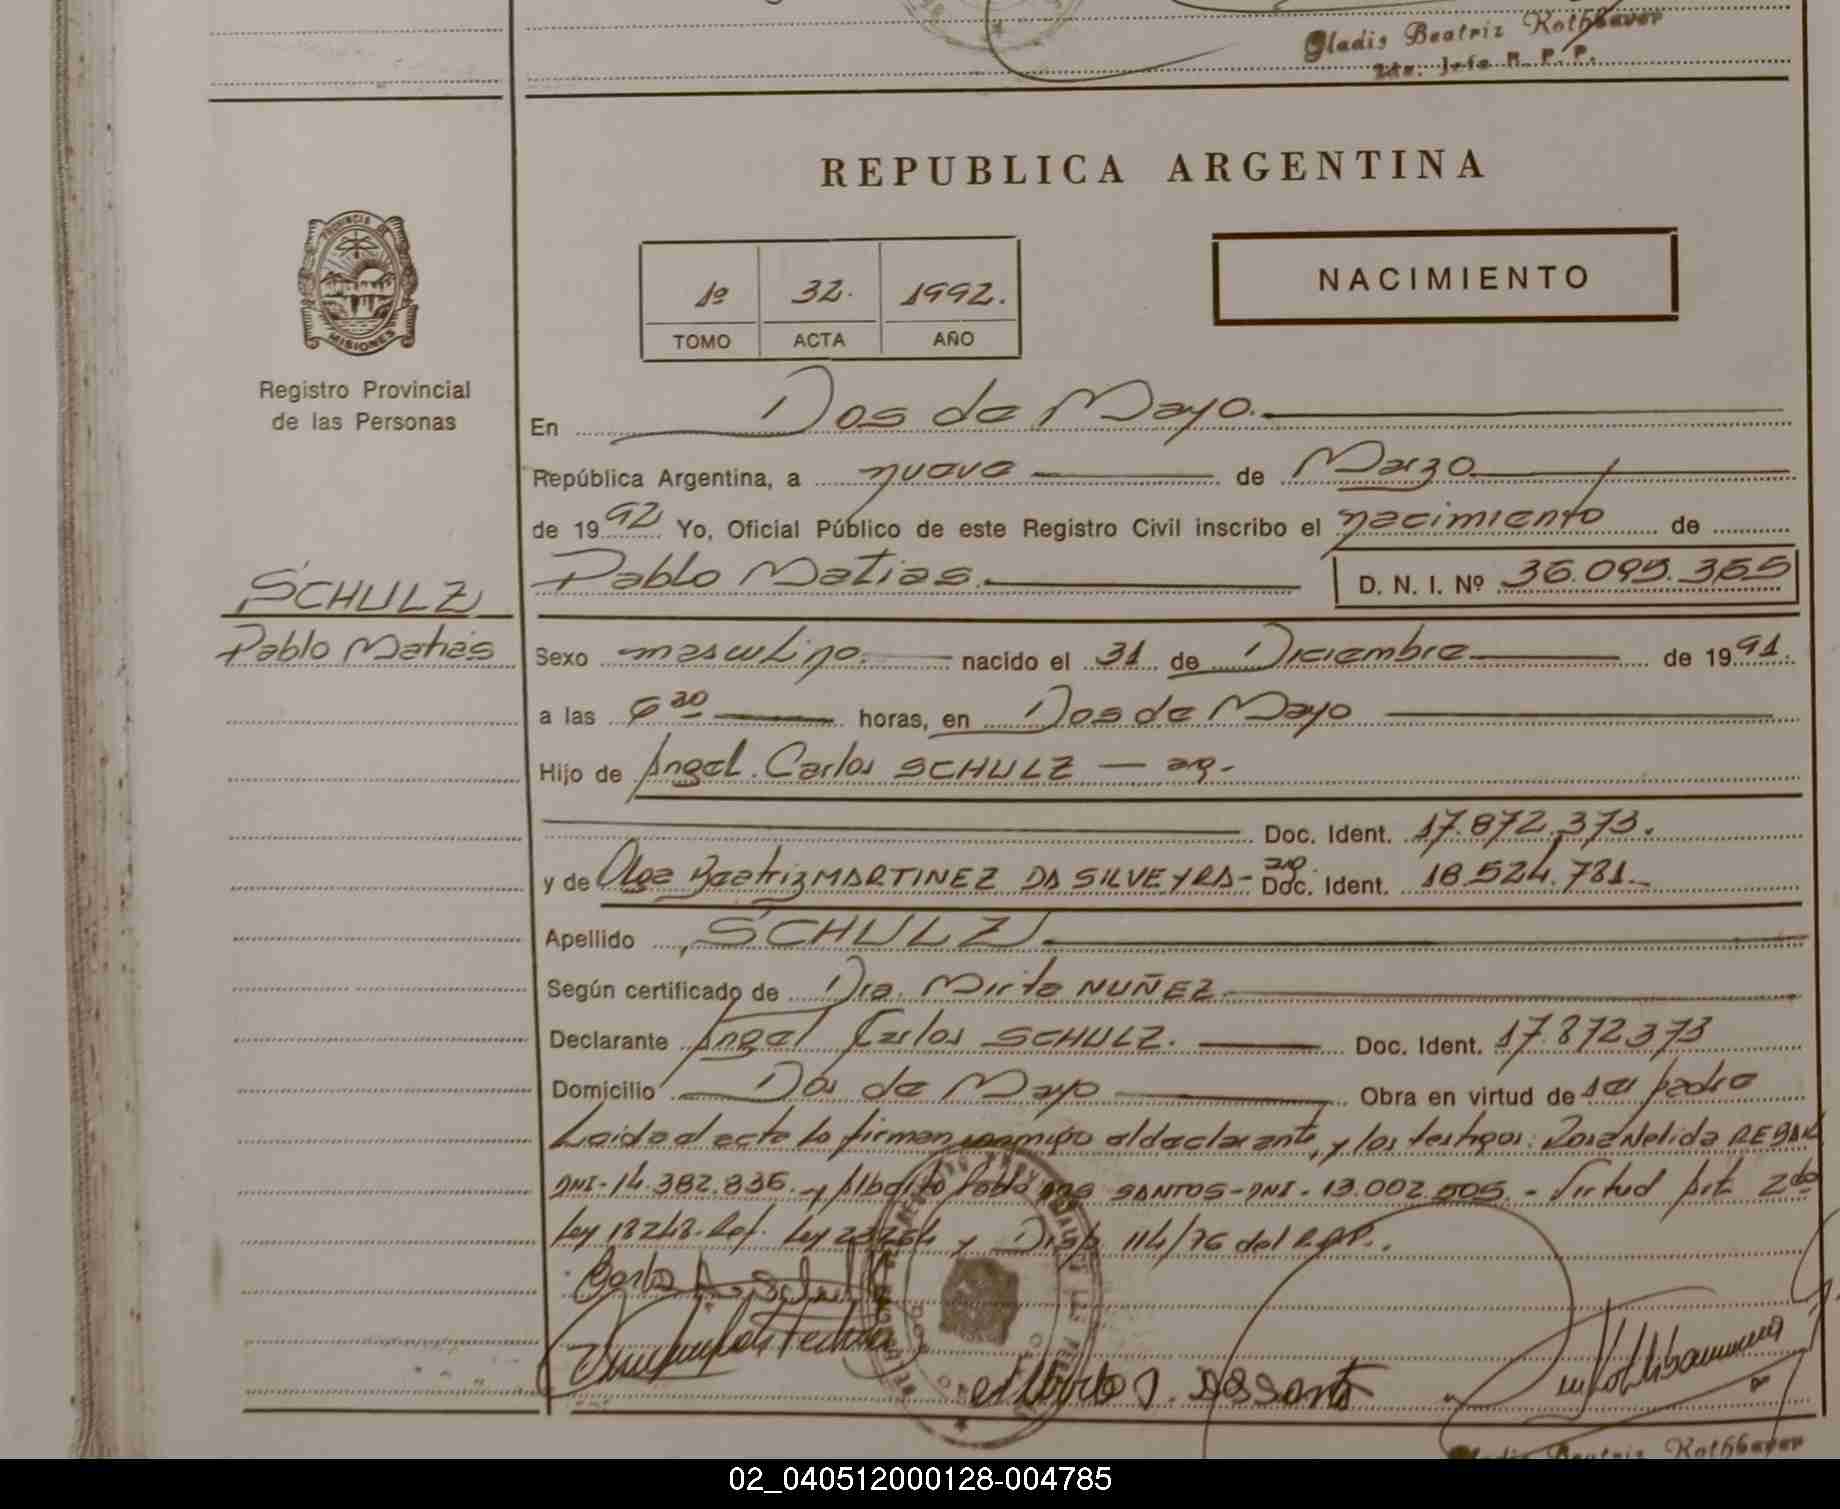 Gladis Beatriz Rothbauer
2da. Jefe R. P. P.
REPUBLICA ARGENTINA
PROVINCIA DE
MISIONES
1º 32. 1992.
TOMO ACTA AÑO
NACIMIENTO
Registro Provincial
de las Personas
En Dos de Mayo.
República Argentina, a nueve de Marzo
de 1992 Yo, Oficial Público de este Registro Civil inscribo el nacimiento de
SCHULZ
Pablo Matias
Pablo Matias. D. N. I. Nº 36.095.355
Sexo masculino. nacido el 31 de Diciembre de 1991.
a las 6 30 horas, en Dos de Mayo
Hijo de Angel Carlos SCHULZ — arg.
Doc. Ident. 17.872.373.
y de Olga Beatriz MARTINEZ DA SILVEYRA - arg. Doc. Ident. 18.524.781.
Apellido SCHULZ
Según certificado de Dra. Mirta NUÑEZ
Declarante Angel Carlos SCHULZ. Doc. Ident. 17.872373
Domicilio Dos de Mayo Obra en virtud de ser padre
Leida el acta la firman conmigo el declarante, y los testigos: Rosa Nelida
DNI-14.382.836.- y Alberto DOS SANTOS-DNI-13.002.505.- Virtud Art. 2do
Ley 18248. Ref. Ley 23264 y Disp. 114/76 del R.P.P..
Alberto J. Dos Santos
Gladis Beatriz Rothbauer
02_040512000128-004785